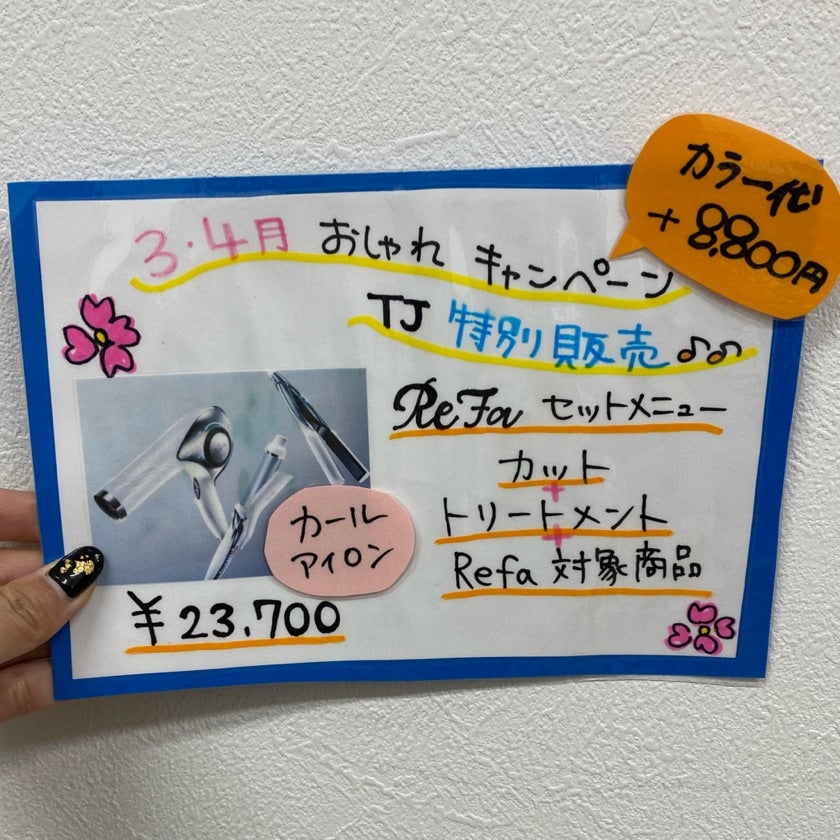 カラー代
+8,800円
3・4月 おしゃれ キャンペーン
TJ 特別販売♪♫
ReFa セットメニュー
カット
+
トリートメント
+
Refa 対象商品
カール
アイロン
¥23,700